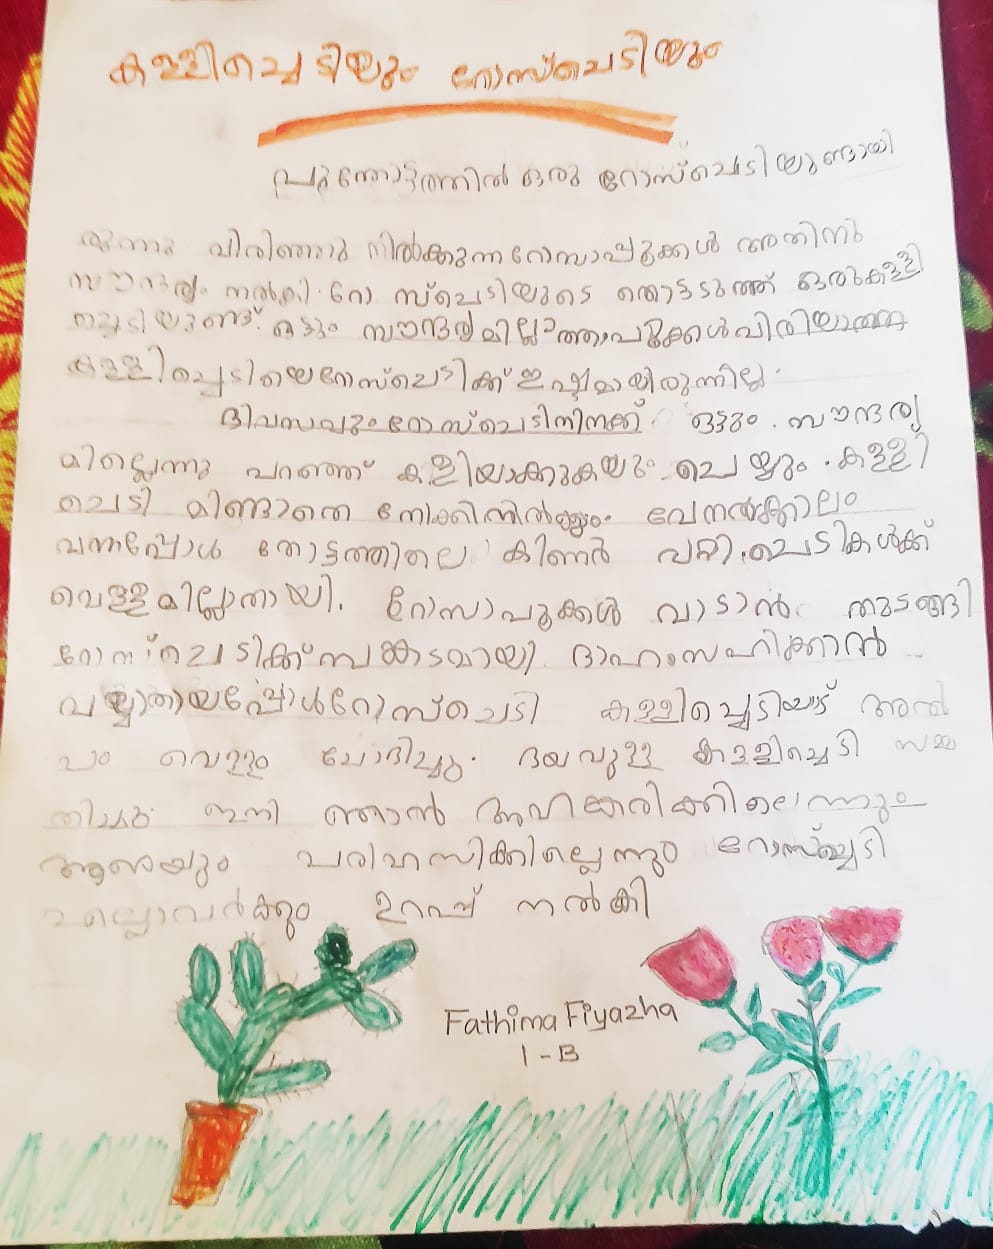 കള്ളിച്ചെടിയും റോസ്ചെടിയും
പൂന്തോട്ടത്തിൽ ഒരു റോസ്ചെടിയുണ്ടായി
രുന്നു വിരിഞ്ഞു നിൽക്കുന്ന റോസാപ്പൂക്കൾ അതിനു
സൗന്ദര്യം നൽകി. റോസ്ചെടിയുടെ തൊട്ടടുത്ത് ഒരു കള്ളി
ച്ചെടിയുണ്ട്. ഒട്ടും സൗന്ദര്യമില്ലാത്ത പൂക്കൾ വിരിയാത്ത
കള്ളിച്ചെടിയെ റോസ്ചെടിക്ക് ഇഷ്ടമായിരുന്നില്ല.
ദിവസവും റോസ്ചെടി നിനക്ക് ഒട്ടും. സൗന്ദര്യ
മില്ലെന്നു പറഞ്ഞ് കളിയാക്കുകയും ചെയ്യും. കള്ളി
ചെടി മിണ്ടാതെ നോക്കിനിൽക്കും. വേനൽക്കാലം
വന്നപ്പോൾ തോട്ടത്തിലെ കിണർ വറ്റി. ചെടികൾക്ക്
വെള്ളമില്ലാതായി. റോസാപൂക്കൾ വാടാൻ തുടങ്ങി
റോസ്ചെടിക്ക് സങ്കടമായി. ദാഹം സഹിക്കാൻ
വയ്യാതായപ്പോൾ റോസ്ചെടി കള്ളിച്ചെടിയോട് അൽ
പം വെള്ളം ചോദിച്ചു. ദയവുള്ള കള്ളിച്ചെടി സമ്മ
തിച്ചു ഇനി ഞാൻ അഹങ്കരിക്കില്ലെന്നും
ആരെയും പരിഹസിക്കില്ലെന്നും റോസ്ച്ചെടി
എല്ലാവർക്കും ഉറപ്പ് നൽകി
Fathima Fiyazha
1 - B